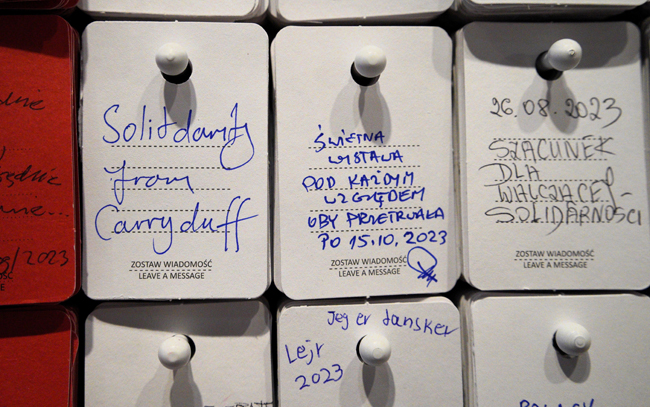 Solitdarity
from
Carryduff
ZOSTAW WIADOMOŚĆ
LEAVE A MESSAGE
ŚWIETNA
WYSTAWA
POD KAŻDYM
WZGLĘDEM
OBY PRZETRWAŁA
PO 15.10.2023
ZOSTAW WIADOMOŚĆ
LEAVE A MESSAGE
26.08.2023
SZACUNEK
DLA
WALCZĄCEJ
SOLIDARNOŚCI
ZOSTAW WIADOMOŚĆ
LEAVE A MESSAGE
Jeg er dansker
Lejr
2023